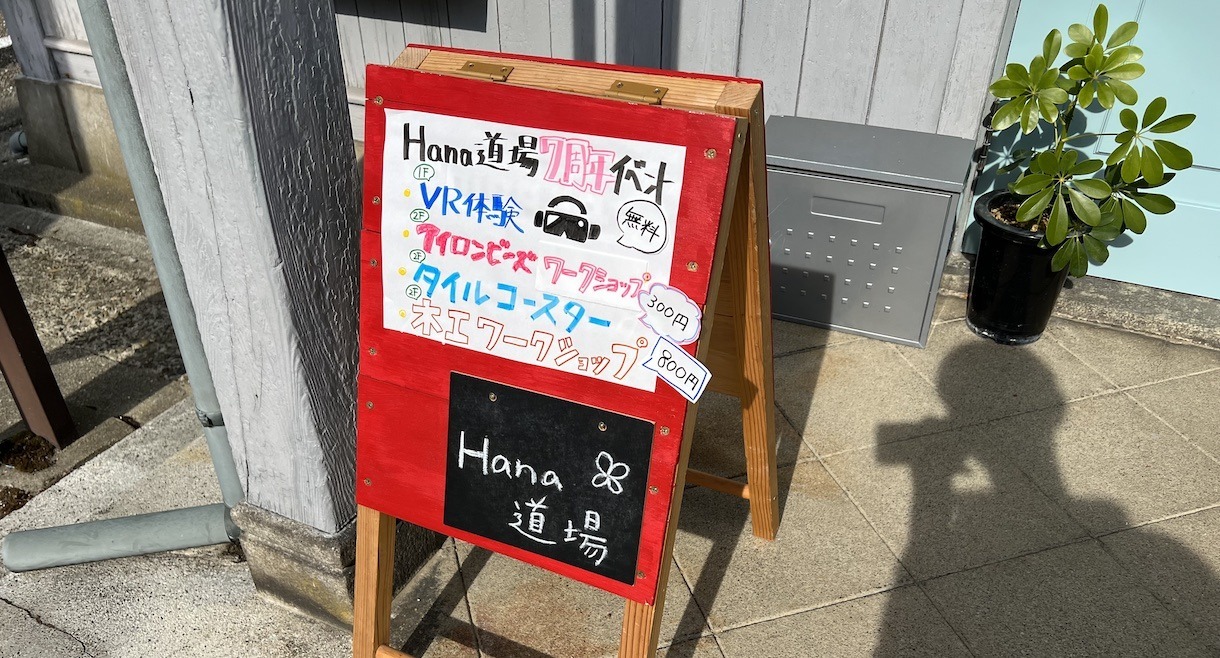 Hana道場7周年イベント
1F
・VR体験
無料
2F
・アイロンビーズ ワークショップ
2F
・タイルコースター
300円
2F
・木工ワークショップ
800円
Hana
道場